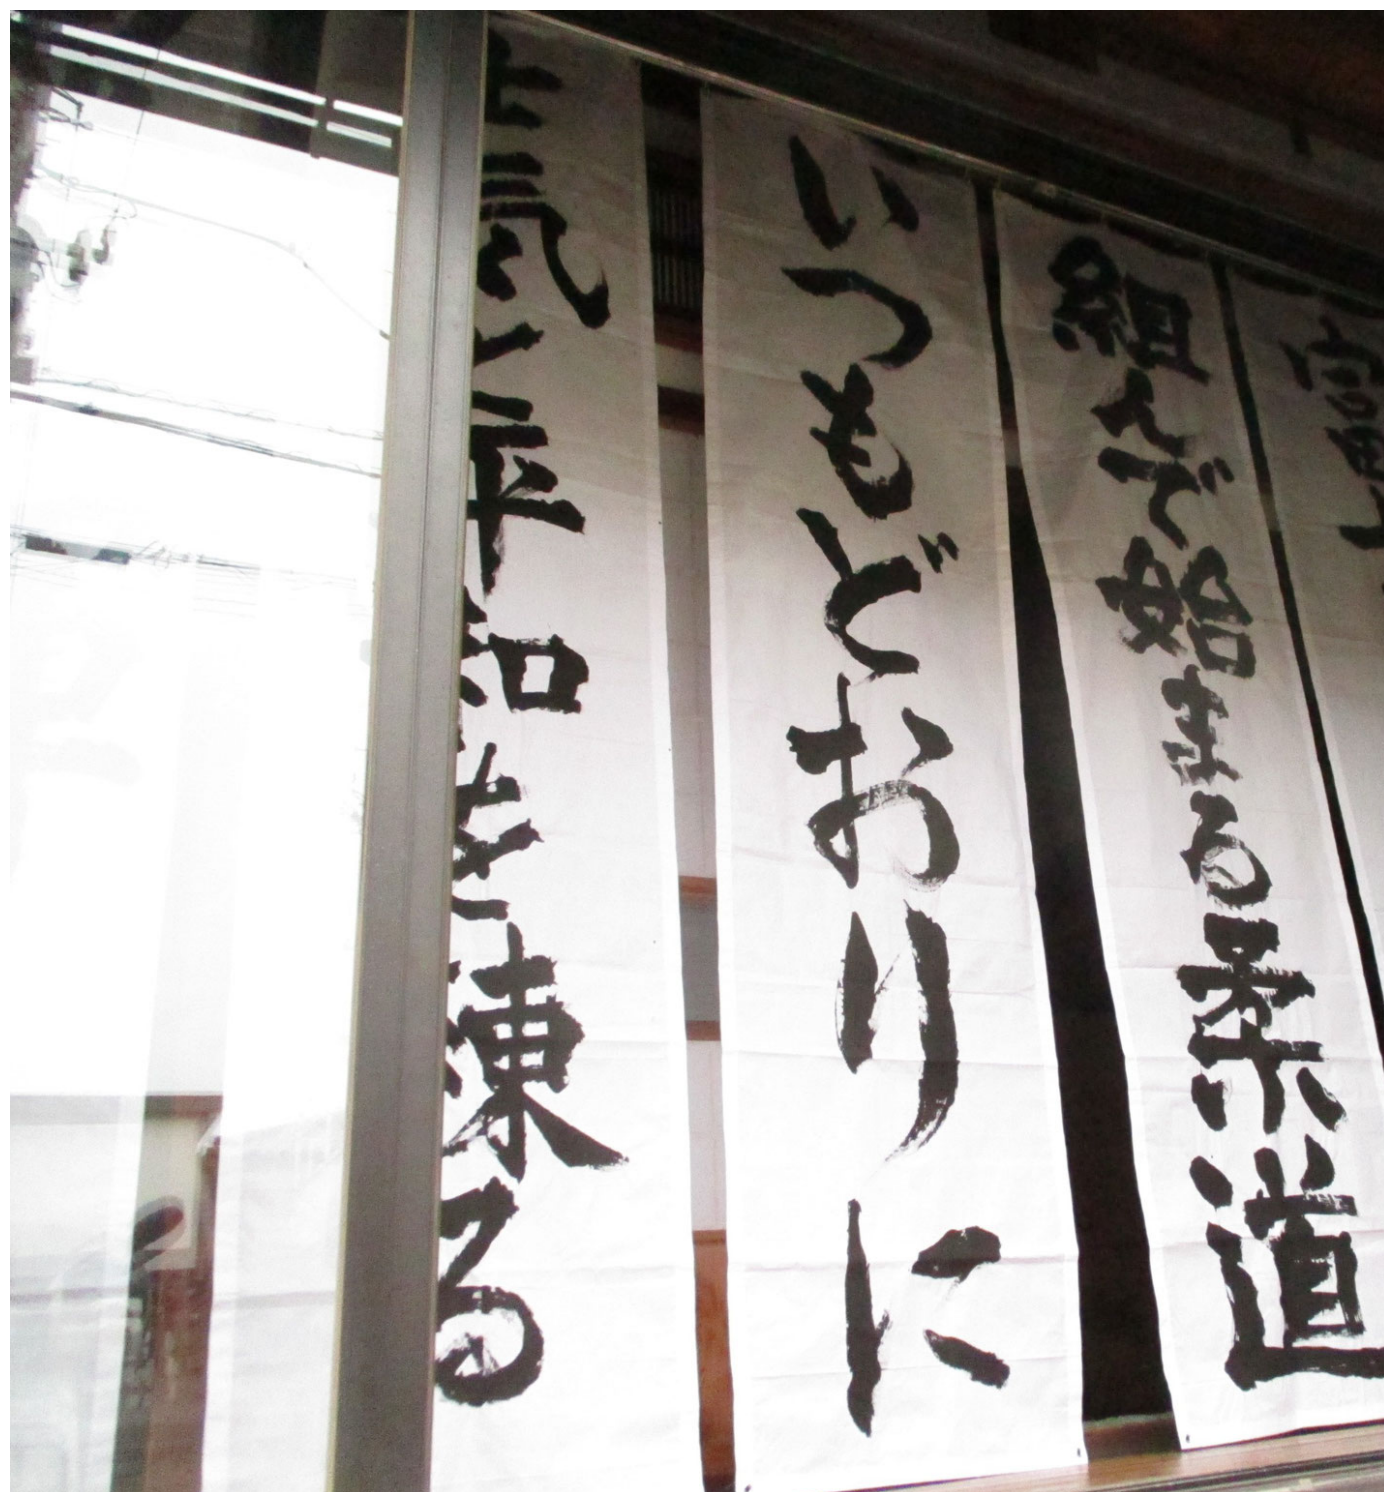 富士
組んで始まる柔道
いつもどおりに
気と平和を練る